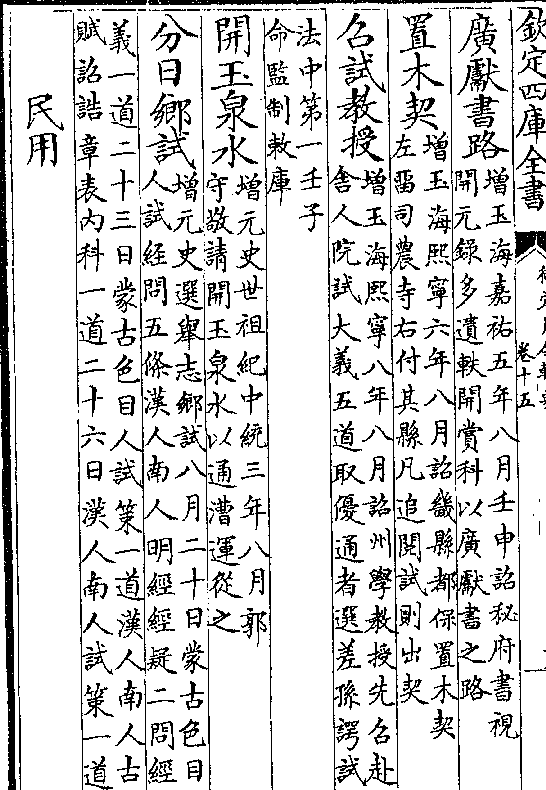 欽定四庫全書
卷十五
廣獻書路增玉海嘉祐五年八月壬申詔秘府書視
開元錄多遺軼開賞科以廣獻書之路
置木契增玉海熙寧六年八月詔畿縣都保置木契
左畱司農寺右付其縣凡追閱試則出契
召試教授增玉海熙寧八年八月詔州學教授先召赴
舍人院試大義五道取優通者選差孫諤試
法中第一壬子
命監制敕庫
開玉泉水增元史世祖紀中統三年八月郭
守敬請開玉泉水以通漕運從之
分日鄉試增元史選舉志鄉試八月二十日蒙古色目
人試經問五條漢人南人明經經疑二問經
義一道二十三日蒙古色目人試策一道漢人南人古
賦詔誥章表內科一道二十六日漢人南人試策一道
民用